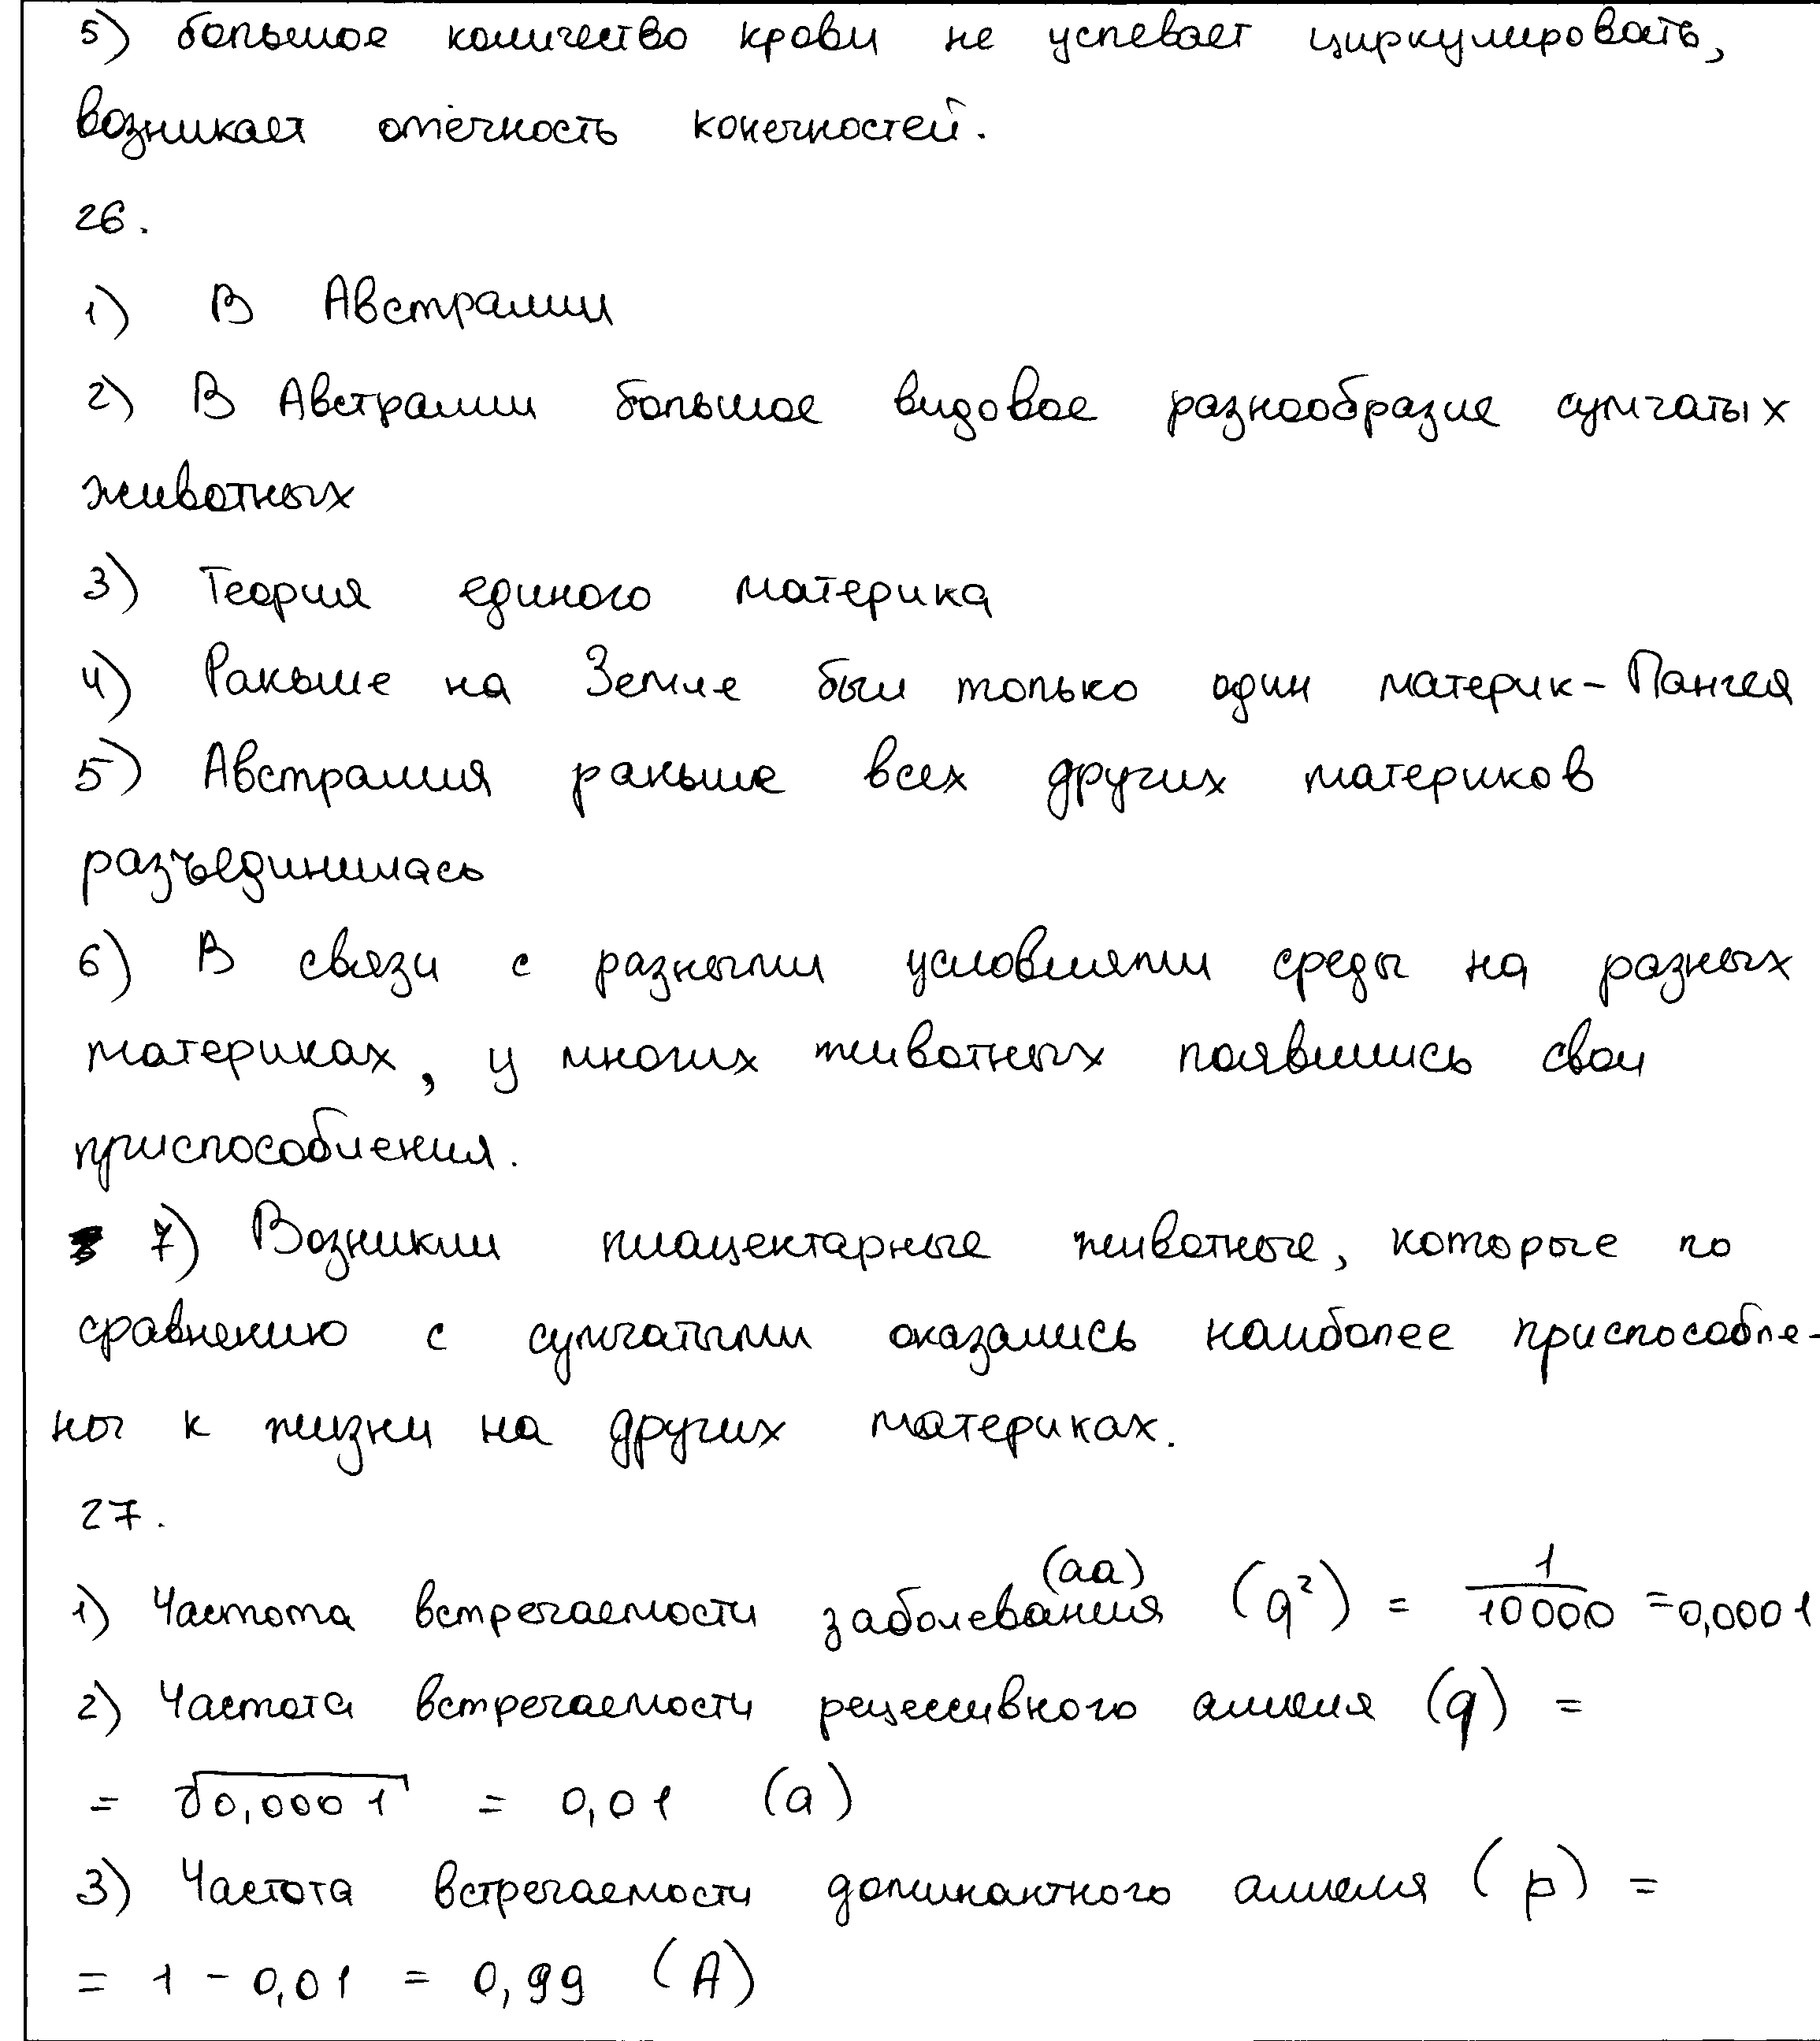 5) большое количество крови не успевает циркулировать,
возникает отечность конечностей.
26.
1) В Австралии
2) В Австралии большое видовое разнообразие сумчатых
животных
3) Теория единого материка
4) Раньше на Земле был только один материк - Пангея
5) Австралия раньше всех других материков
разъединилась
6) В связи с разными условиями среды на разных
материках, у многих животных появились свои
приспособления.
7) Возникли плацентарные животные, которые по
сравнению с сумчатыми оказались наиболее приспособле-
ны к жизни на других материках.
27.
1) Частота встречаемости заболевания (aa) (q²) = 1/10000 = 0,0001
2) Частота встречаемости рецессивного аллеля (q) =
= √0,0001 = 0,01 (a)
3) Частота встречаемости доминантного аллеля (p) =
= 1 - 0,01 = 0,99 (A)